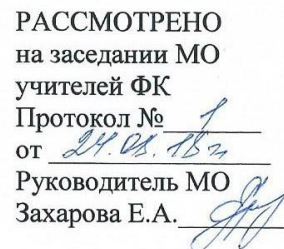 РАССМОТРЕНО
на заседании МО
учителей ФК
Протокол № 1
от 24.08.18г
Руководитель МО
Захарова Е.А.